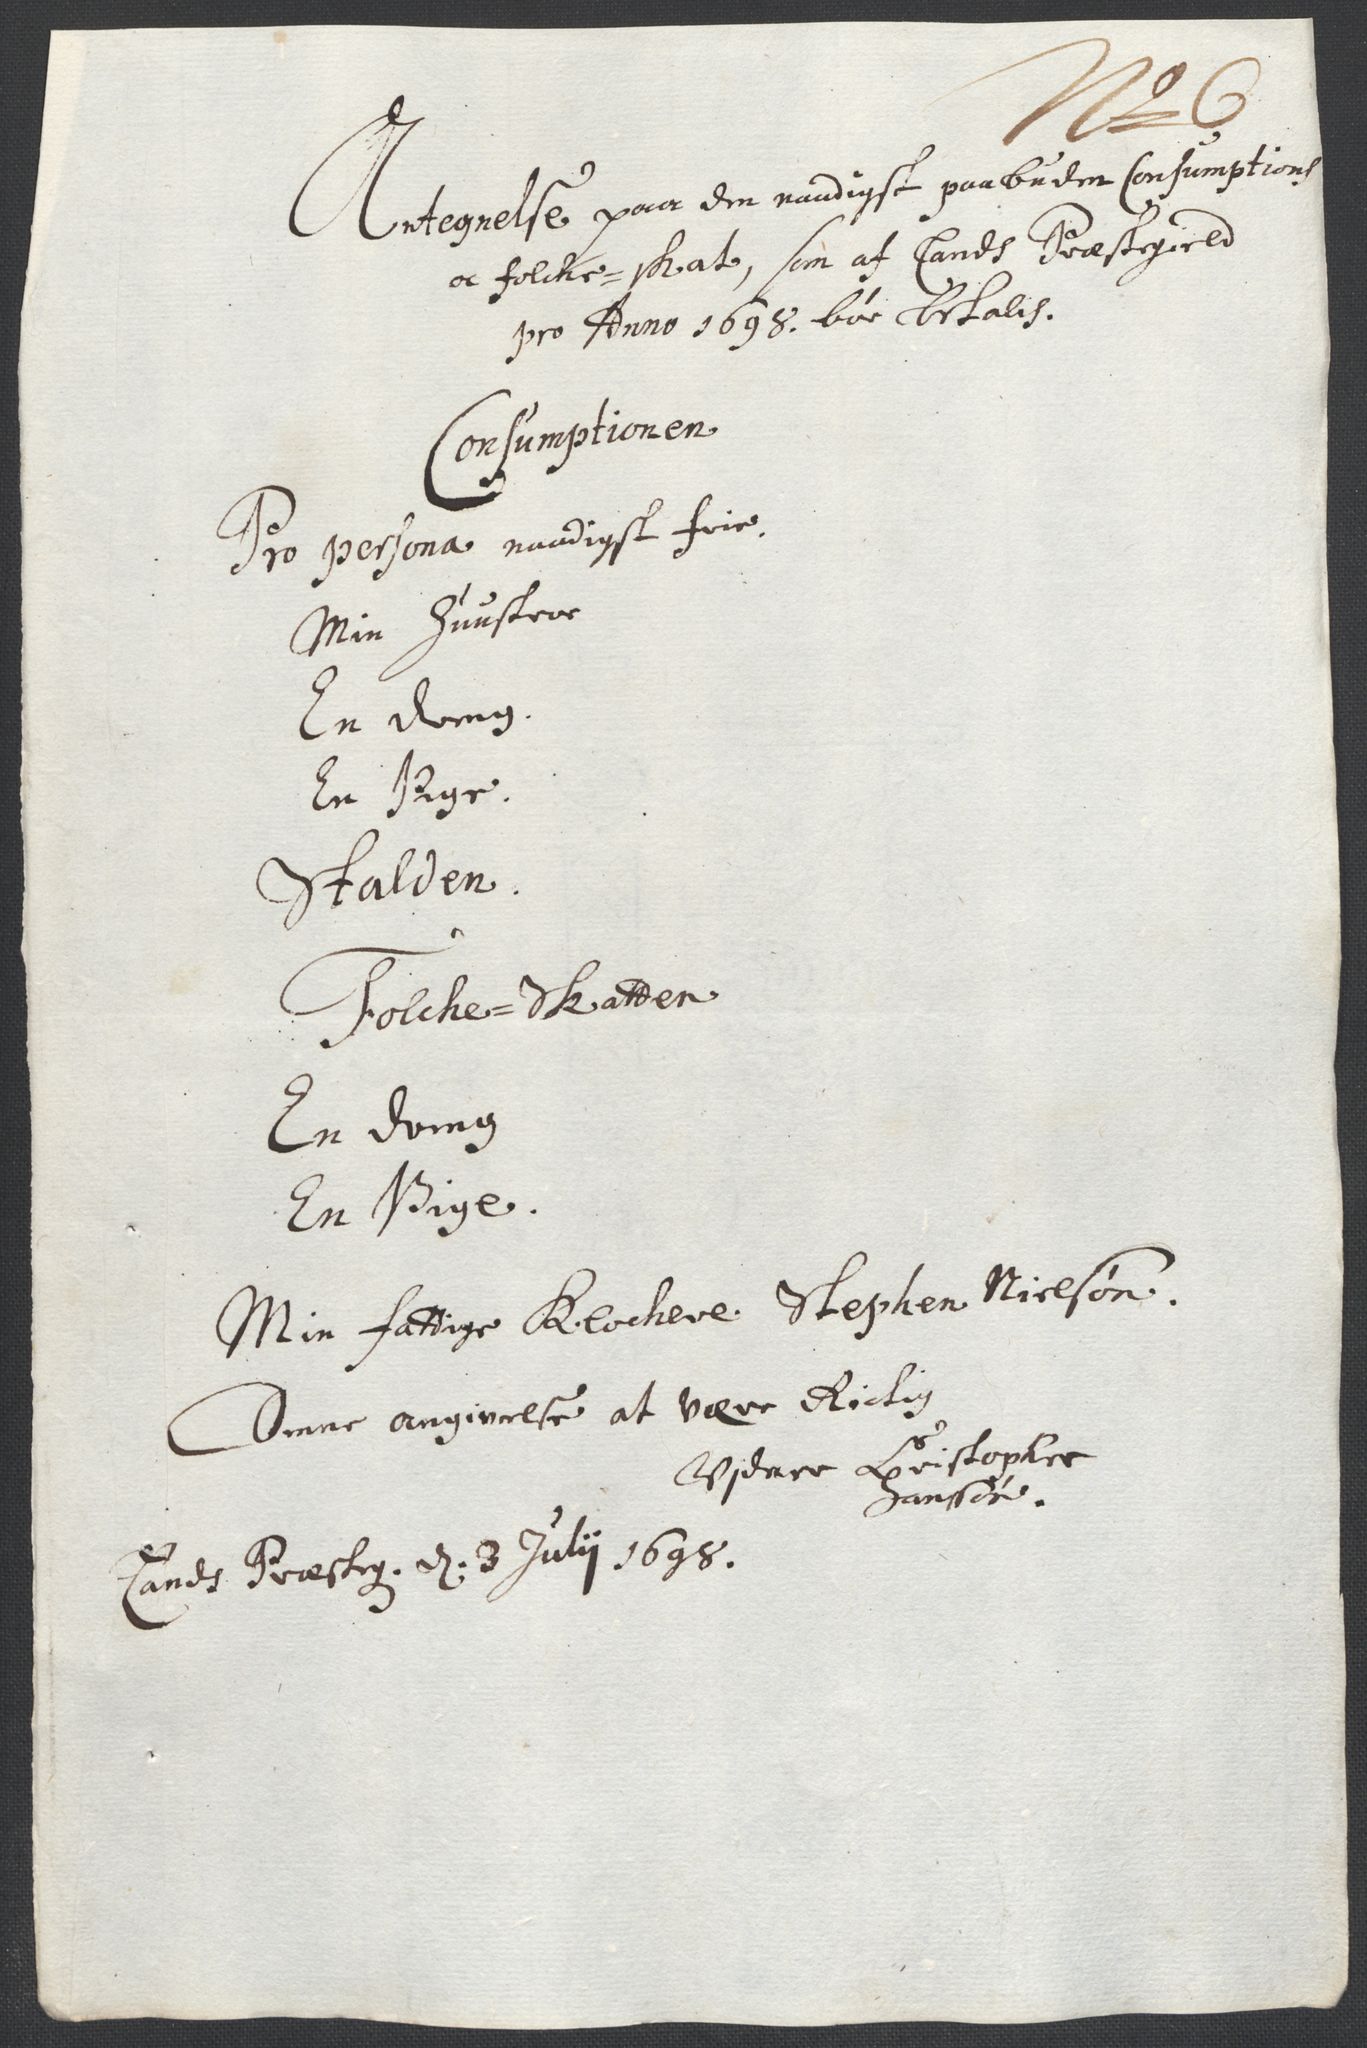 No 6
Antegnelse paa den naadigst paabuden Consumptions
oc folche=skat, som af Lands Præstegield
pro Anno 1698. bør betalis.
Consumptionen
Pro persona naadigst frie.
Min Huustroe
En dreng.
En Pige.
Skalden.
Folche=Skatten
En dreng
En Pige.
Min fattige Klochere Stephen Nielsøn.
Denne angivelse at være Rictig
Vidner Christopher
Hanssøn.
Lands Præsteg. d. 3 Julij 1698.